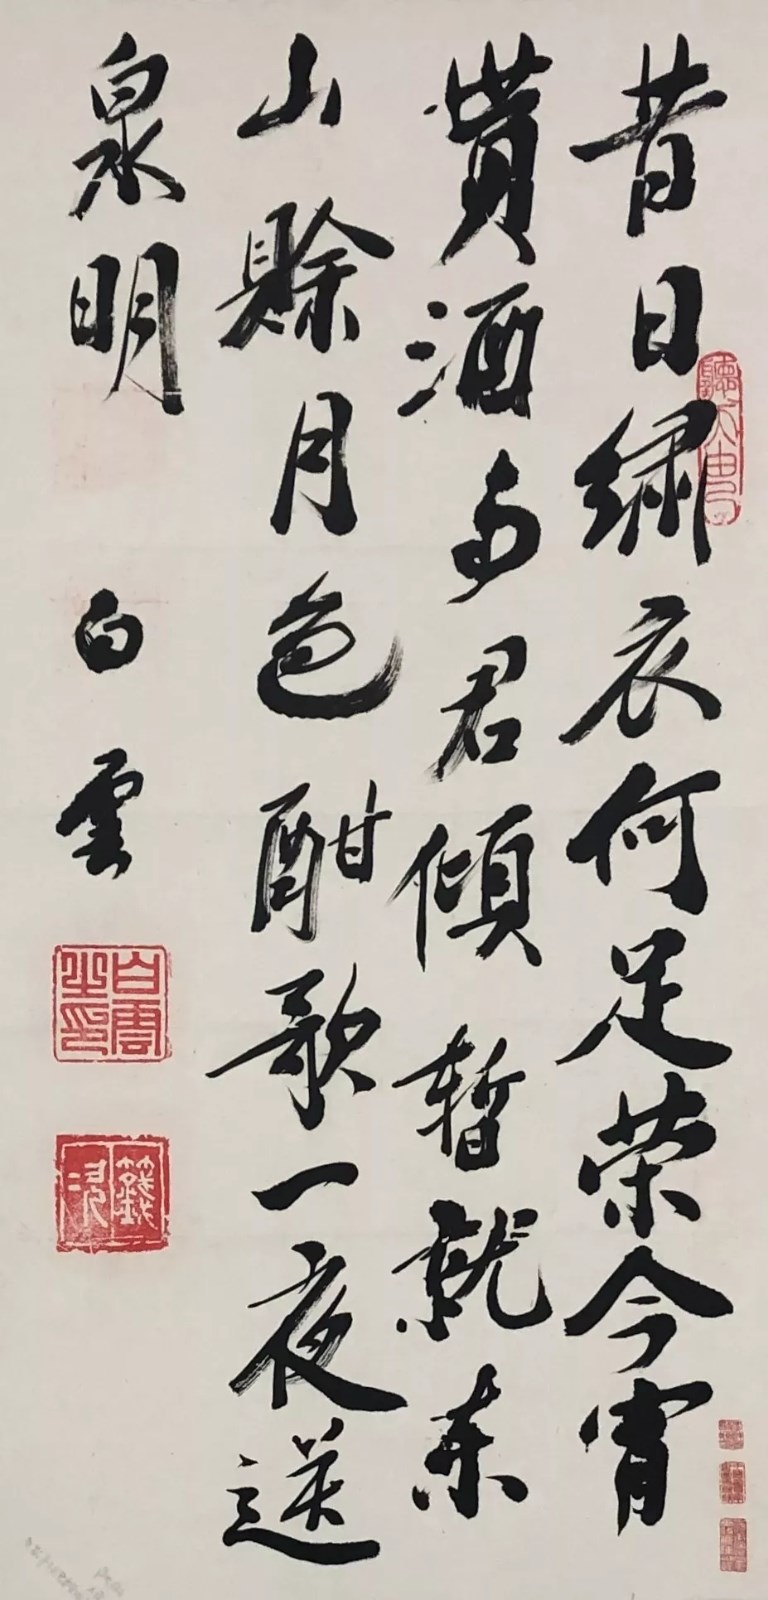 昔日繡衣何足荣今宵
貰酒与君傾暫就东
山賒月色酣歌一夜送
泉明
白雲